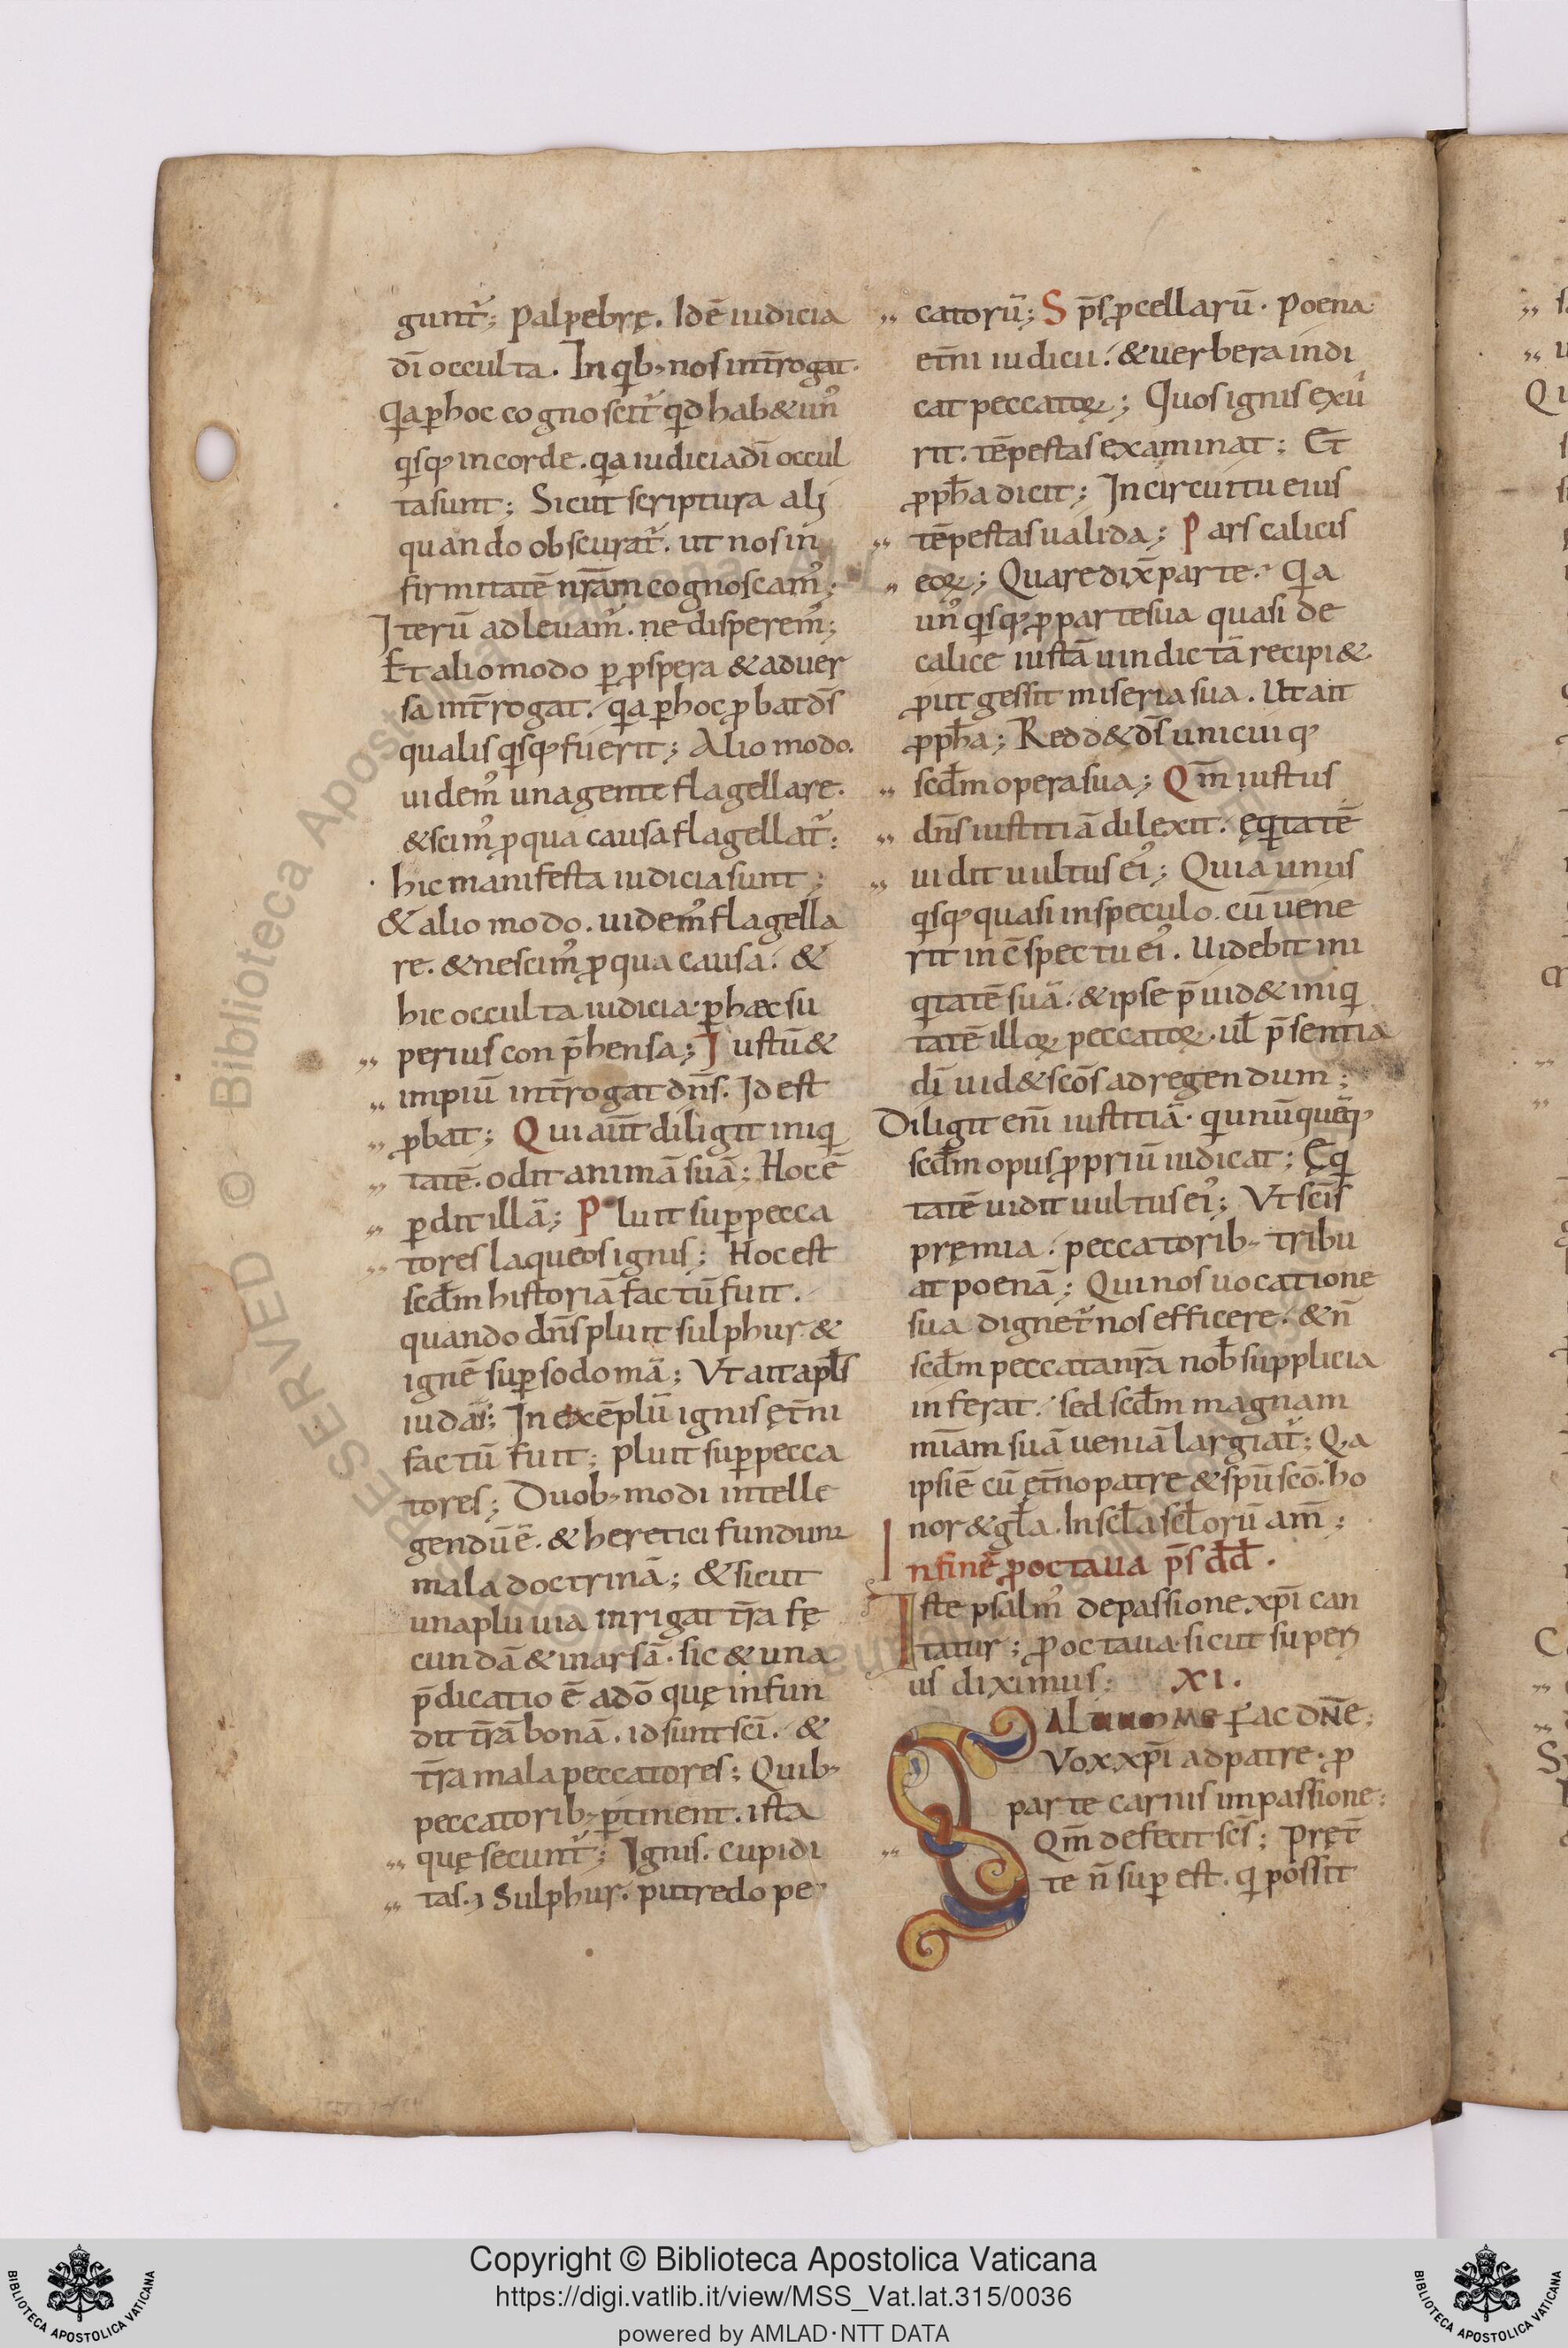 gunt᷑; Palpebrę. Idē iudicia
dī occulta. In qib; nos int̄rogat.
Qia ꝑ hoc cognoscit᷑ qid hab& un᷒
qisq; in corde. qia iudicia dī occul
ta sunt; Sicut scriptura ali
quando obscurat᷑. ut nos in
firmitatē nr̄am cognoscam᷒;
Iterū adleuam᷑. ne disperem᷒;
Et alio modo ꝑ ꝓspera & aduer
sa int̄rogat. qia ꝑ hoc ꝓbat dr̄s
qualis qisq; fuerit; Alio modo.
uidem᷒ una gente flagellare.
& scim᷒ ꝓ qua causa flagellat᷑:
hic manifesta iudicia sunt;
& alio modo. uidem᷒ flagella
re. & nescim᷒ ꝓ qua causa. &
hic occulta iudicia ꝑ hæc su
perius con p̄hensa; Iustū &
impiū int̄rogat dn̄s. Id est
ꝓbat; Qui aut̄ diligit iniqi
tatē. odit animā suā; Hoc ē
ꝑdit illā; Pluit suꝑ pecca
tores laqueos ignis; Hoc est
scd̄m historiā factū fuit.
quando dn̄s pluit sulphur &
ignē suꝑ sodomā; Vt ait apl̄s
iudas; In exēplū ignis ęt̄ni
factū fuit; pluit suꝑ pecca
tores; Duob; modi intelle
gendū ē. & heretici fundunt
mala doctrinā; & sicut
una pluuia inrigat t̄ra fę
cundā & inarsā. sic & una
p̄dicatio ē ad̄o quę infun
dit t̄rā bonā. id sunt sc̄i. &
t̄ra mala peccatores; Quib;
peccatorib; ꝑtinent. ista
quę secunt᷑; Ignis. cupidi
tas. Sulphur. putredo pec
catorū; S p̄s ꝓcellarū. Poena
et̄ni iudicii. & uerbera indi
cat peccatoꝝ; Quos ignis exu
rit. tēpestas examinat; Et
ꝓph̄a dicit; In circuitu eius
tēpestas ualida; Pars calicis
eoꝝ; Quare dix̄ parte. Qia
un᷒ qisq; ꝓ parte sua quasi de
calice iustā uindictā recipi&
ꝓut gessit miseria sua. Ut ait
ꝓph̄a; Redd& dr̄s unicuiq;
scd̄m opera sua; Qm̄ iustus
dn̄s iustitiā dilexit. ęqitatē
uidit uultus ei᷒; Quia unus
qisq; quasi in speculo. cū uene
rit in c̄spectu ei᷒. Uidebit ini
qitatē suā. & ipse p̄uid& iniqi
tatē illoꝝ peccatoꝝ. ul̄ p̄sentia
dī uid& scōs ad regendum;
Diligit eni᷒ iustitiā. qi unūquēq;
scd̄m opus ꝓpriū iudicat; Ęqi
tatē uidit uultus ei᷒; Vt sc̄is
pręmia. peccatorib; tribu
at poenā; Qui nos uocatione
sua dignet᷑ nos efficere. & n̄
scd̄m peccata nr̄a nob̄ supplicia
inferat. sed scd̄m magnam
mīam suā ueniā largiat᷑; Qia
ipsi ē cū ęt̄no patre & sp̄u scō. ho
nor & gl̄a. In scl̄a scl̄orū am̄;
In finē ꝓ octaua p̄s dd̄.
Iste psalm᷒ de passione xp̄i can
tatur; ꝓ octaua sicut superi
us diximus; XI.
SALUUM ME FAC DN̄E;
Vox xp̄i ad patre. ꝓ
parte carnis in passione:
Qm̄ defecit sc̄s; Pręt̄
te n̄ suꝑ est. qi possit
Copyright © Biblioteca Apostolica Vaticana
https://digi.vatlib.it/view/MSS_Vat.lat.315/0036
powered by AMLAD·NTT DATA